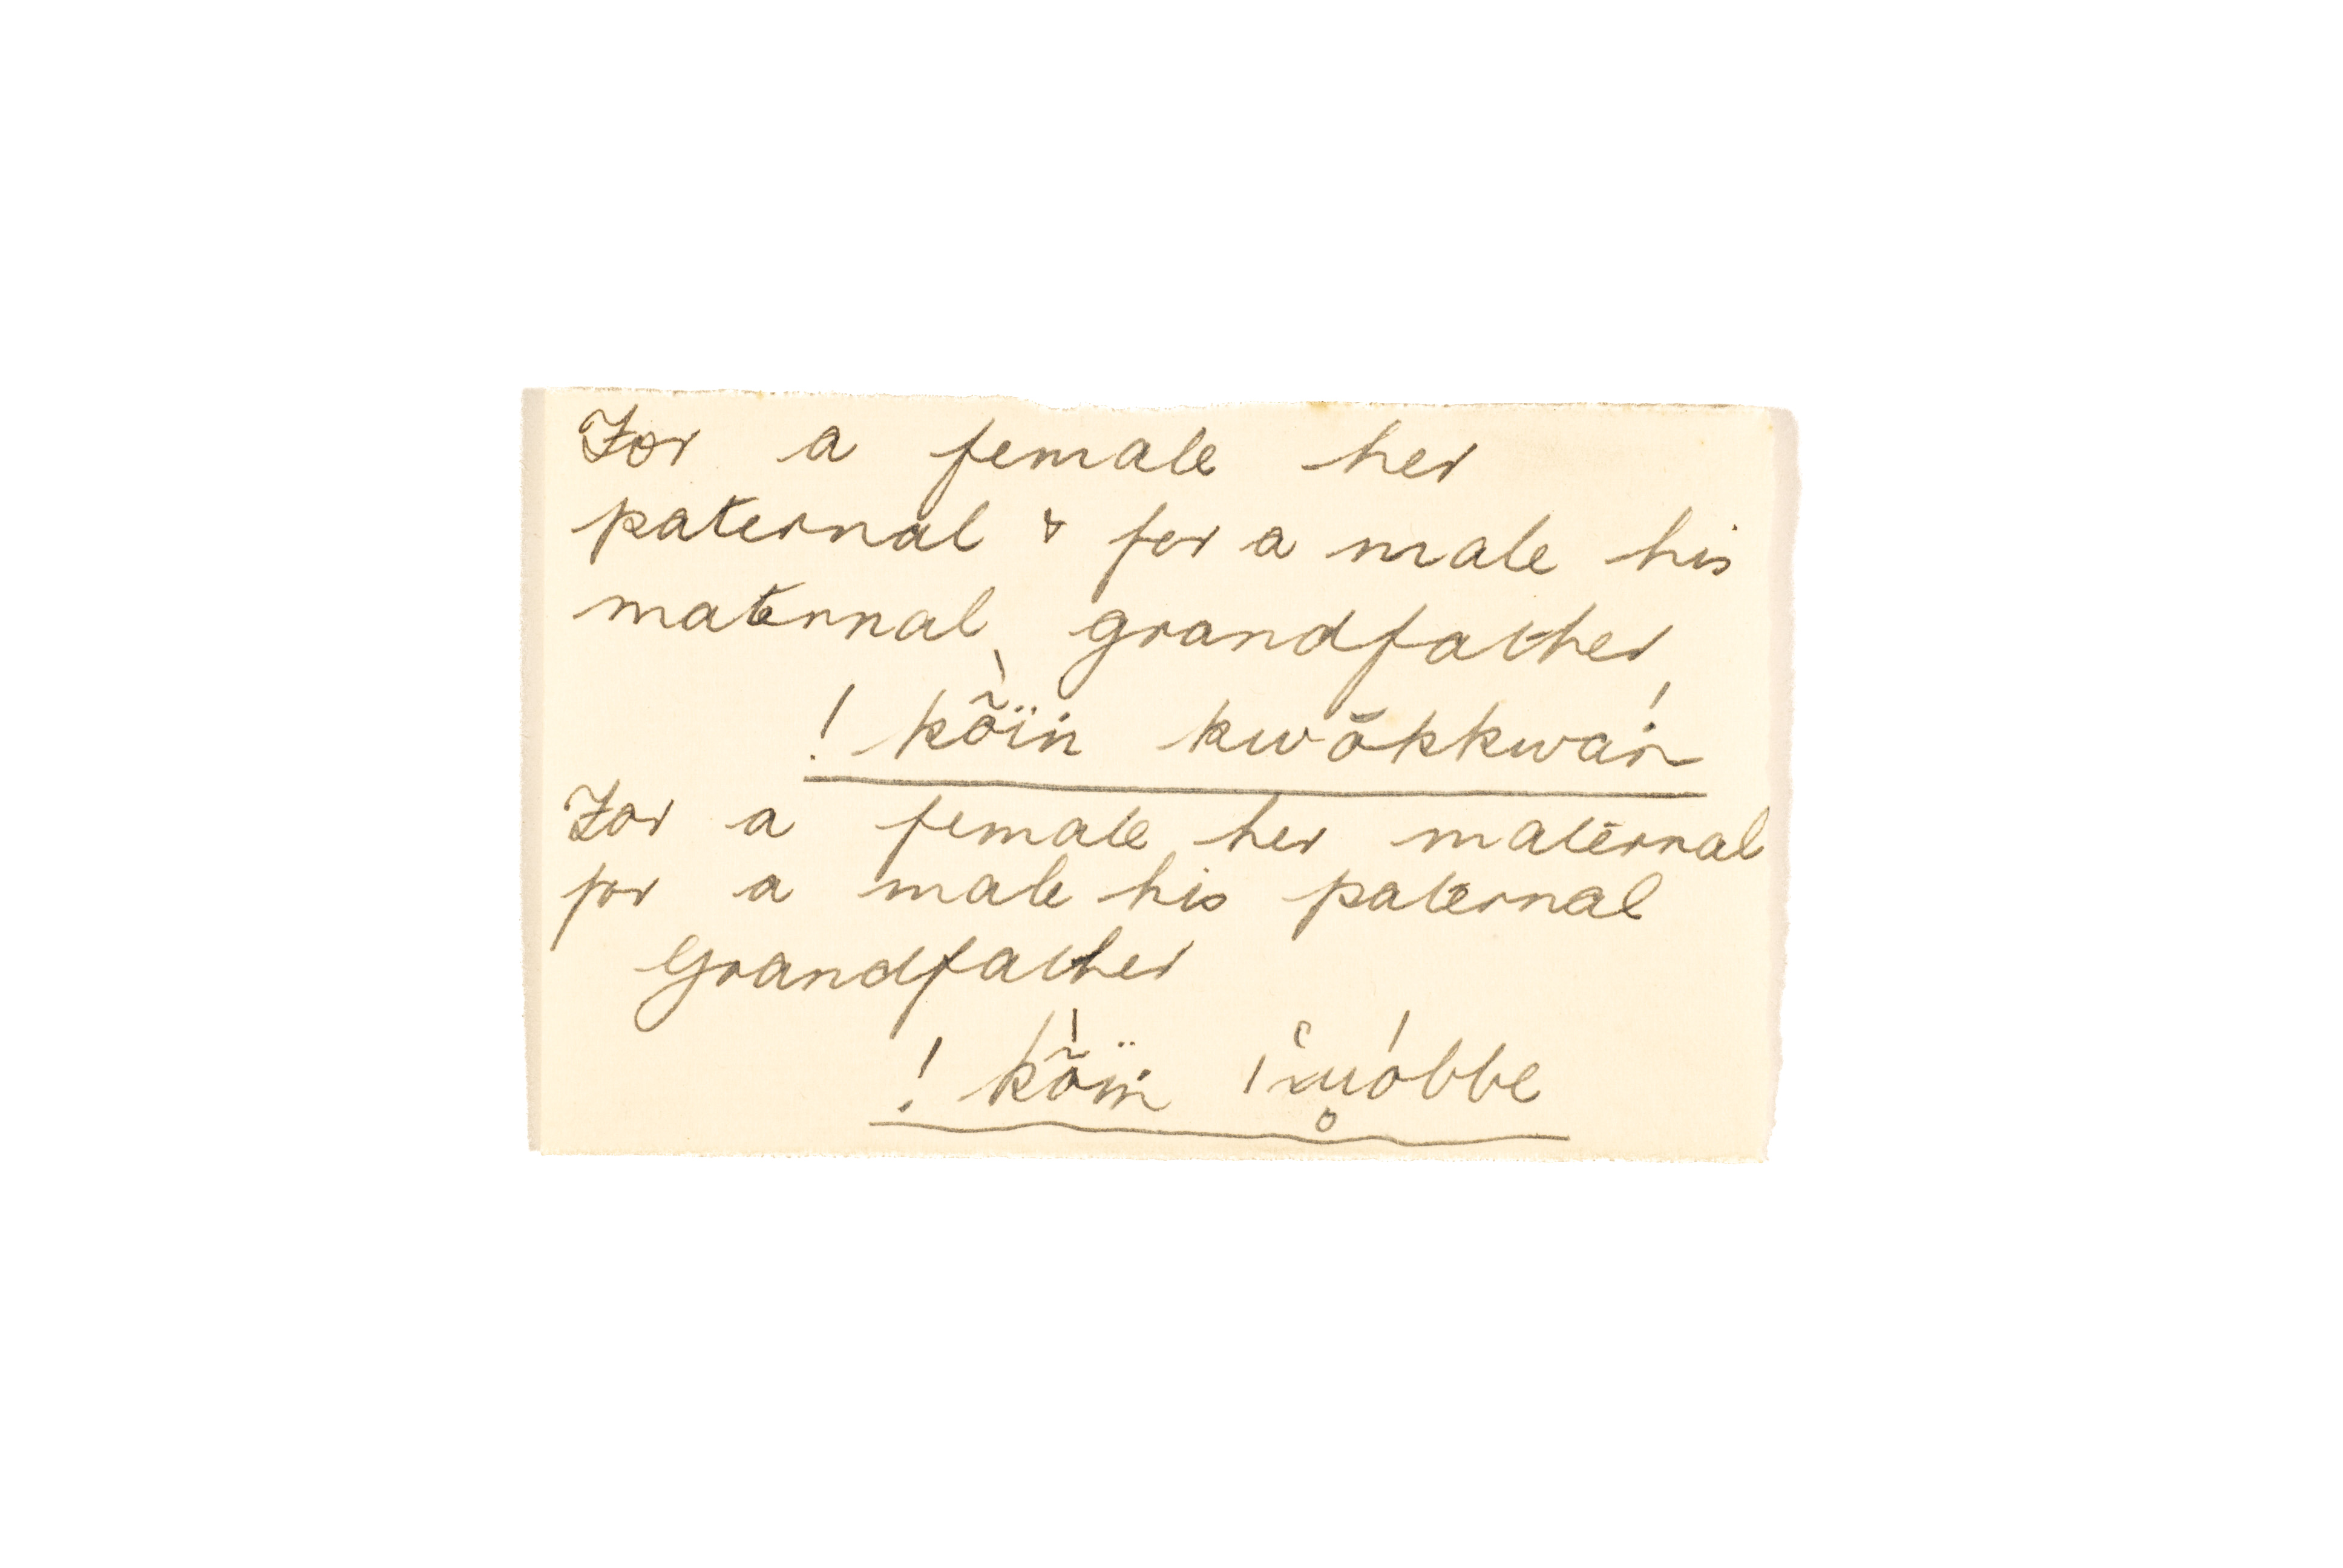 For a female her
paternal & for a male his
maternal grandfather
! kõ̀ïṅ kwōkkwáṅ
For a female her maternal
for a male his paternal
Grandfather
! kõ̀ïṅ